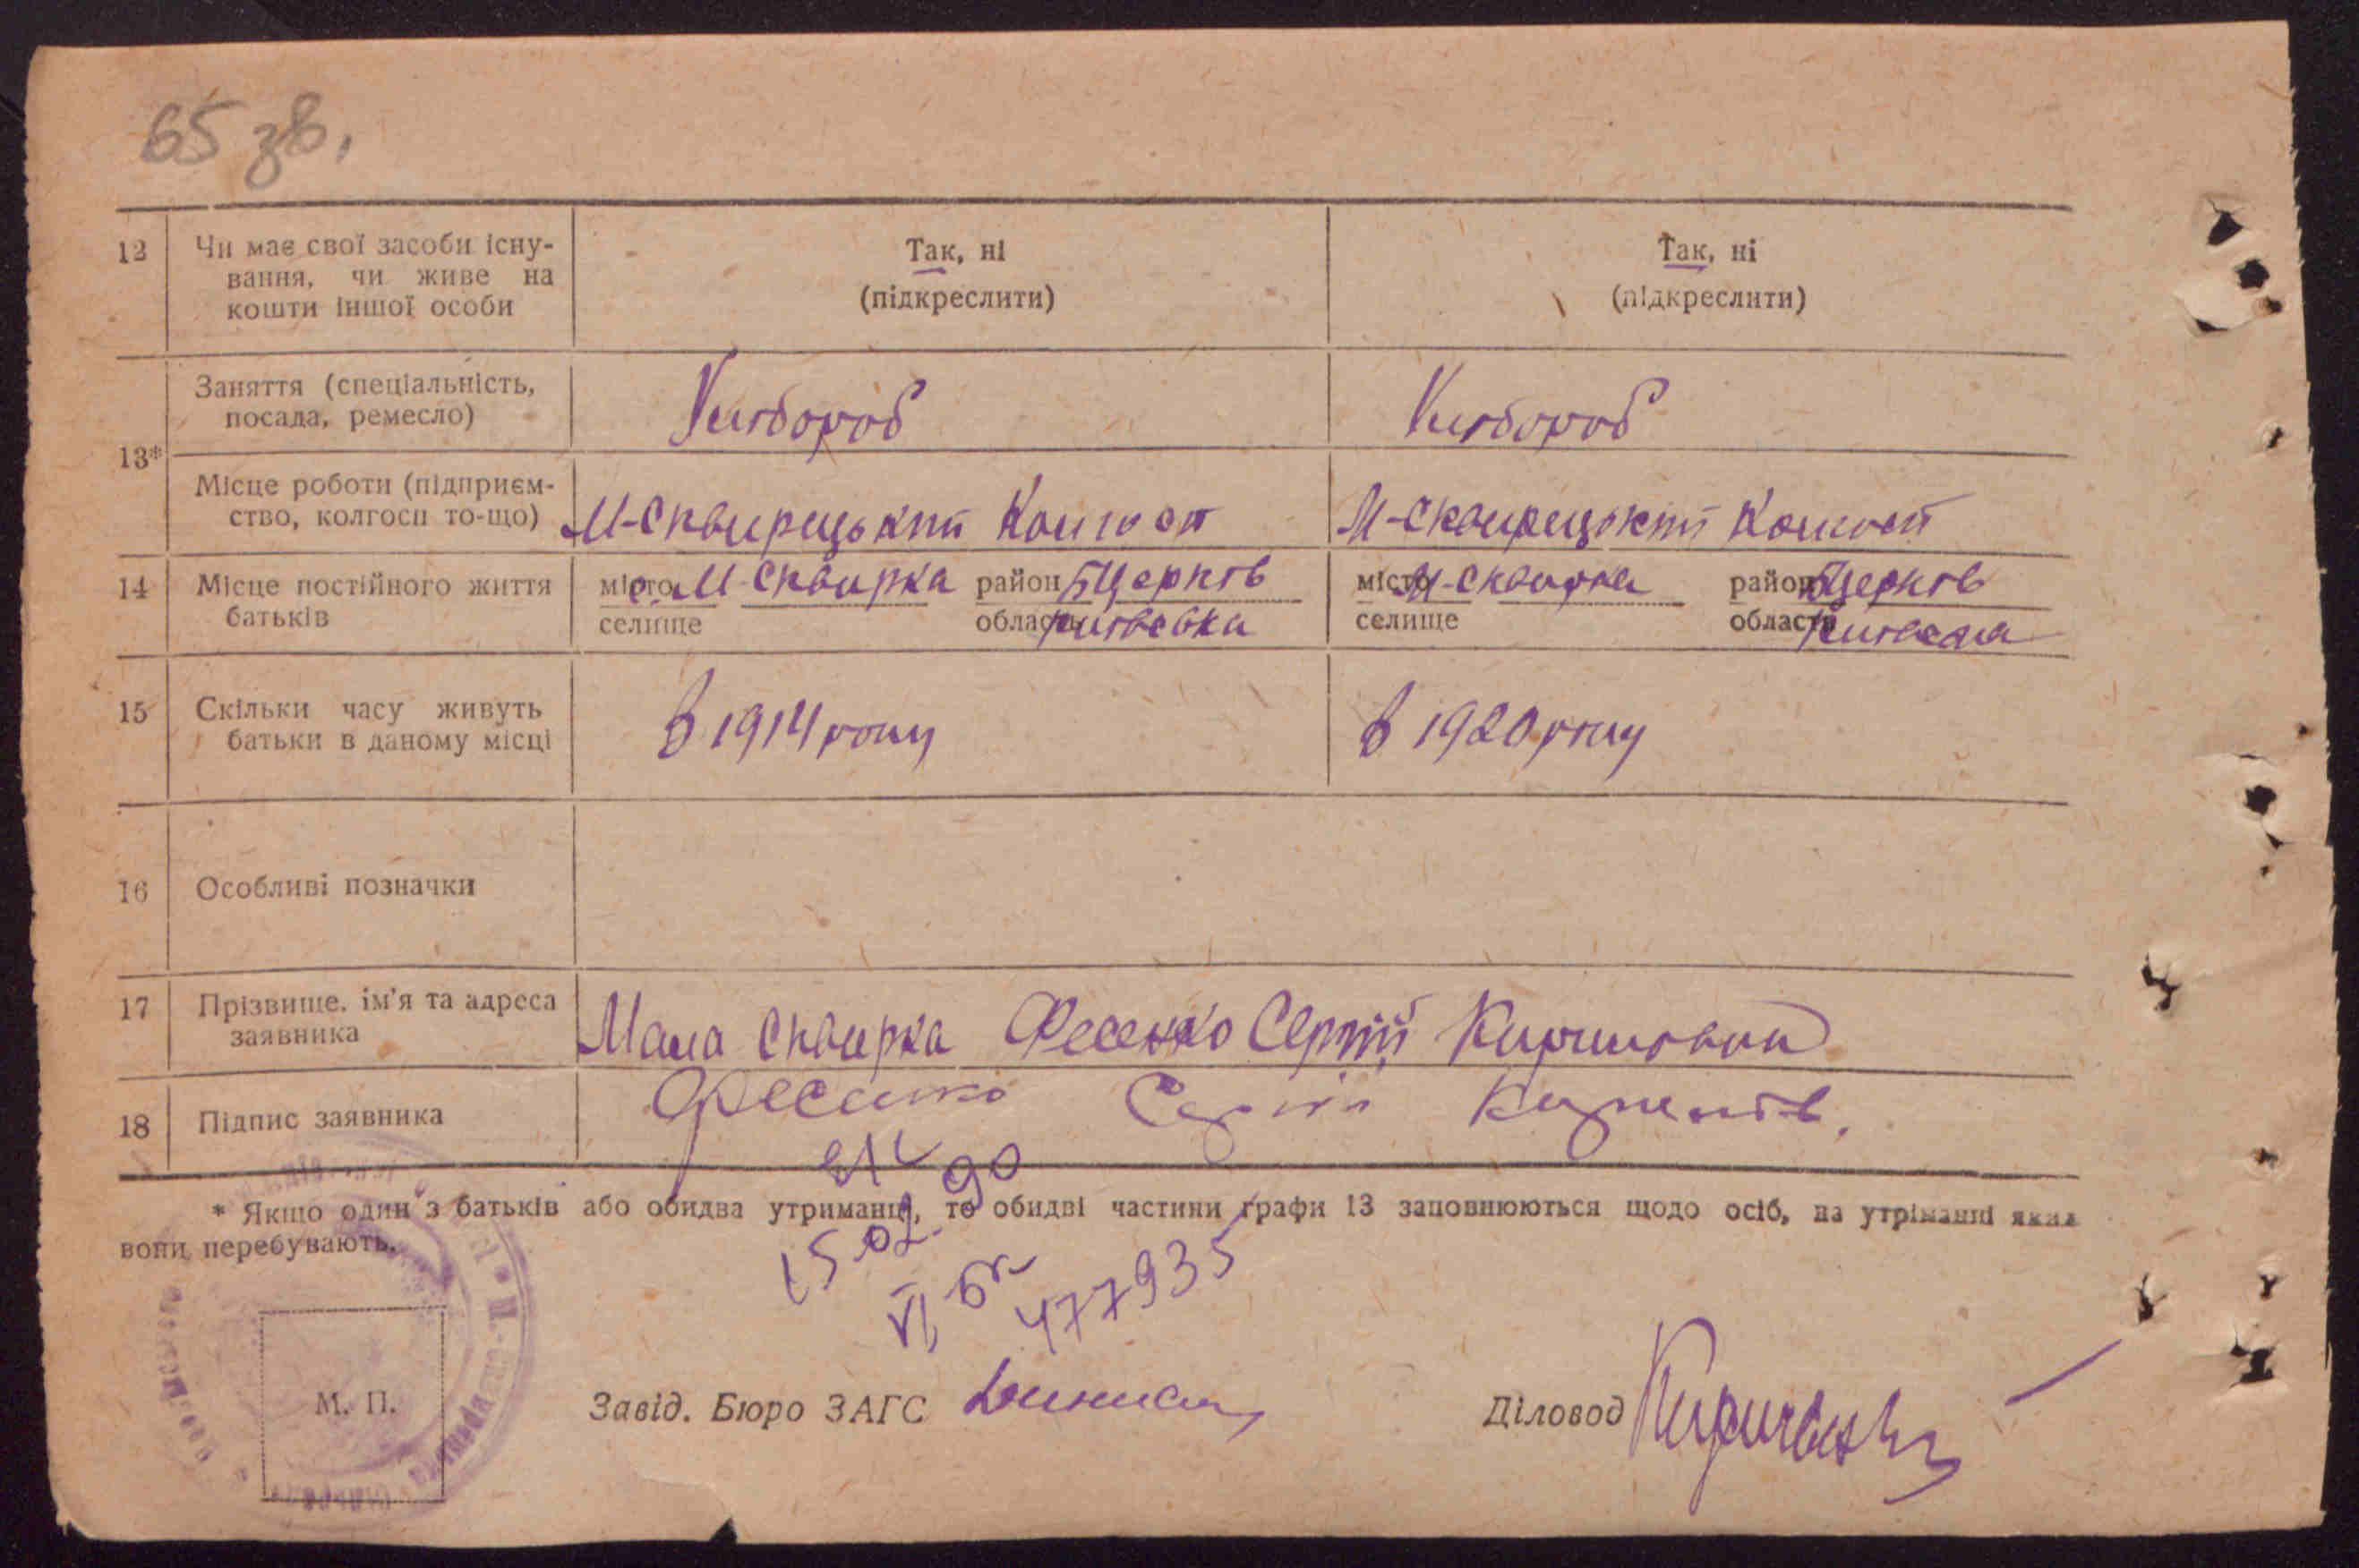 65 зв.
12 Чи має свої засоби існу- Так, ні Так, ні
вання, чи живе на (підкреслити) (підкреслити)
кошти іншої особи
Заняття (спеціальність, Хлібороб Хлібороб
посада, ремесло)
13*
Місце роботи (підприєм- М-Сквирецький Колгосп М-Сквирецький Колгосп
ство, колгосп то-що)
14 Місце постійного життя місто с. М-Сквирка район БЦерків місто М-Сквирка район БЦерків
батьків селище область Київська селище область Київська
15 Скільки часу живуть В 1914 року В 1920 року
батьки в даному місці
16 Особливі позначки
17 Прізвище. ім'я та адреса Мала Сквирка Фесенко Сергій Кирилович
заявника
18 Підпис заявника Фесенко Сергій
* Якщо один з батьків або обидва утриманці, то обидві частини графи 13 заповнюються щодо осіб, на утріманні яких
вони перебувають.
15.02.90
VI БК 477935
М. П. Завід. Бюро ЗАГС Діловод